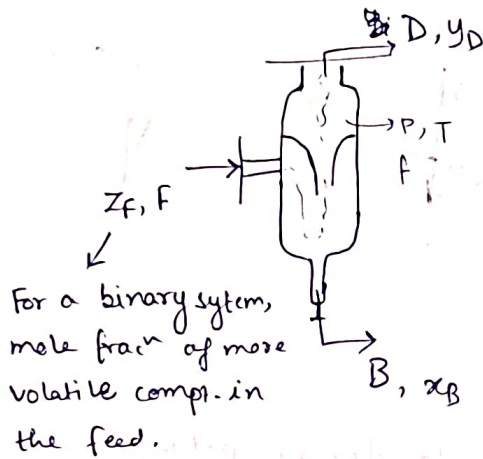 D, y_D
P, T
f
Z_F, F
For a binary sytem,
mole fracⁿ of more
volatile compt. in
the feed.
B, x_B